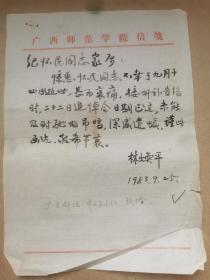 广西师范学院信笺
纪怀民同志家属：
惊悉怀民同志不幸于九月十
四日逝世，甚为哀痛。接获讣告信
时，二十二日追悼会日期已过，未能
及时驰电吊唁，深感遗憾，谨此
函达，敬希节哀。
林焕平
1983.9.25.